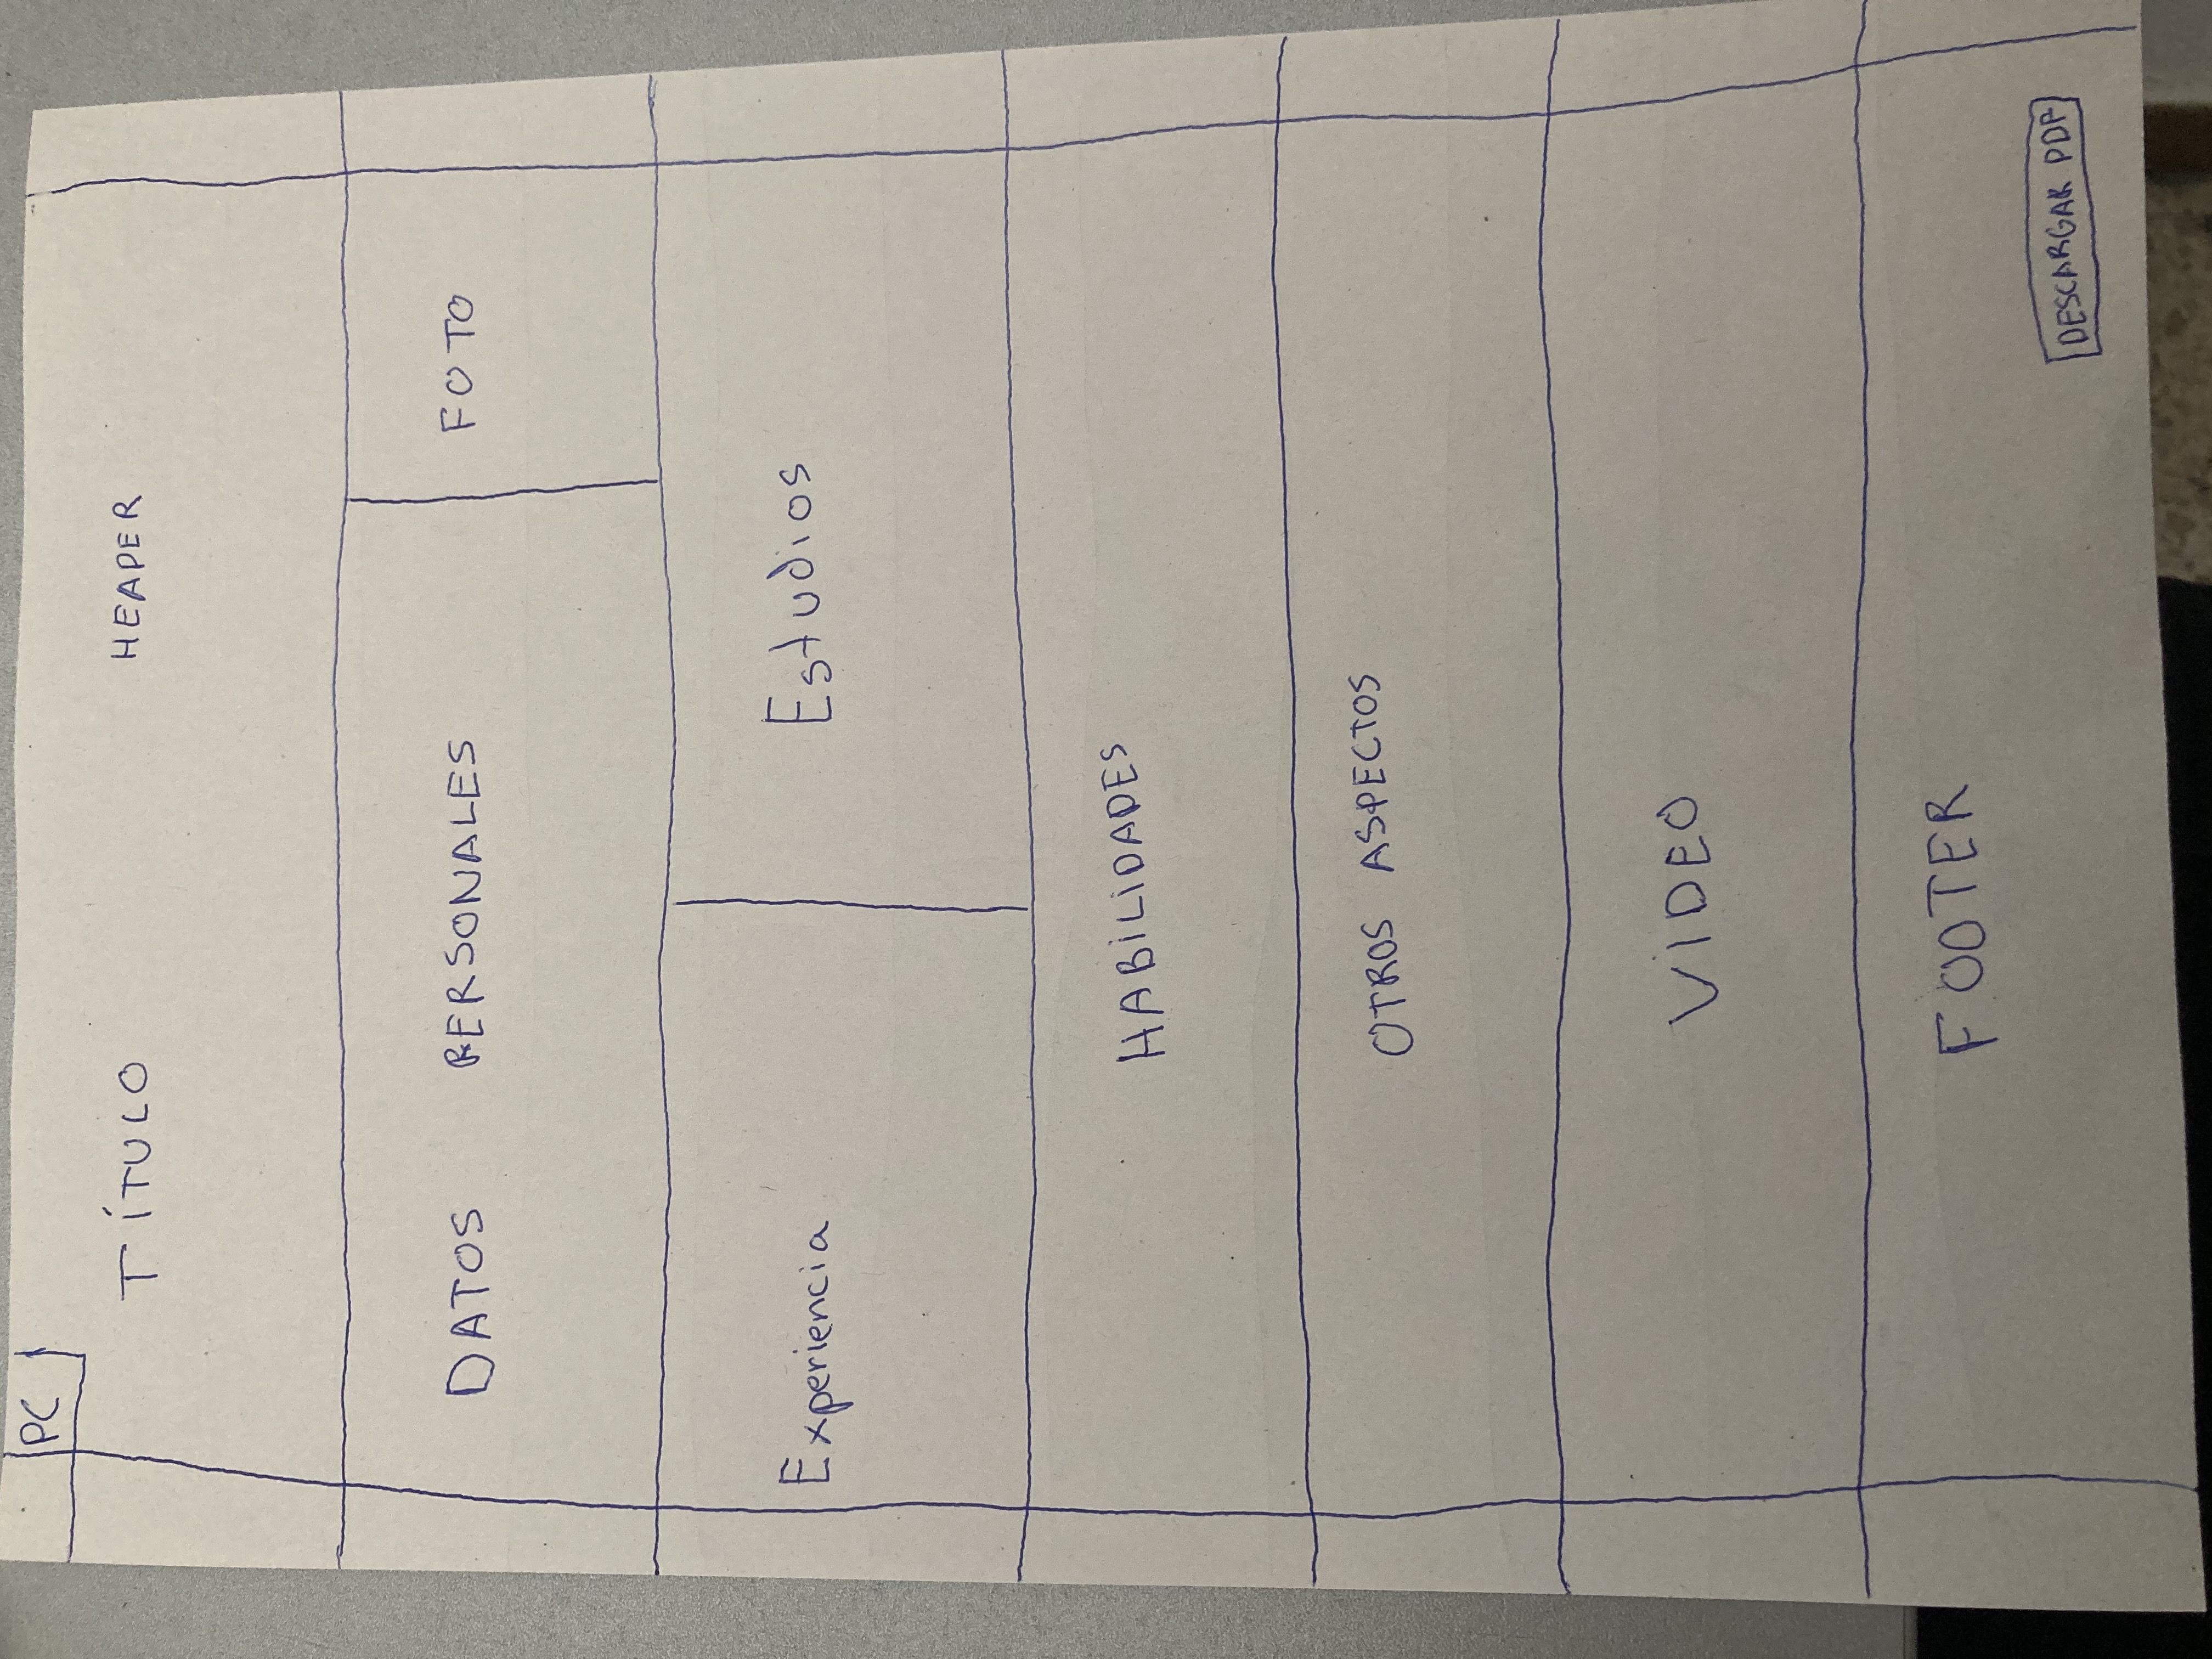 PC
TÍTULO HEADER
DATOS PERSONALES FOTO
Experiencia Estudios
HABILIDADES
OTROS ASPECTOS
VIDEO
FOOTER
DESCARGAR PDF